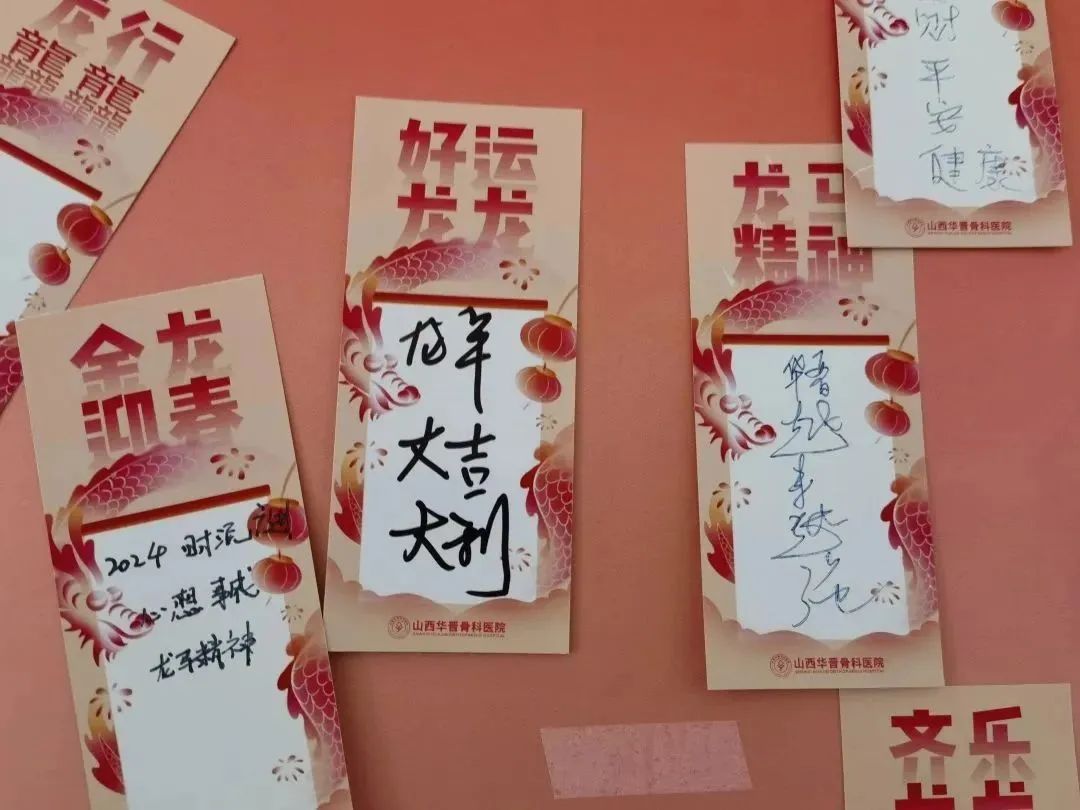 龙行
龘龘
龍龍龍龍
财
平
安
健康
山西华晋骨科医院
好运
龙龙
龙年
大吉
大利
山西华晋骨科医院
龙马
精神
华晋
越来越
强
山西华晋骨科医院
金龙
迎春
2024 时运
心想事成
龙马精神
齐乐